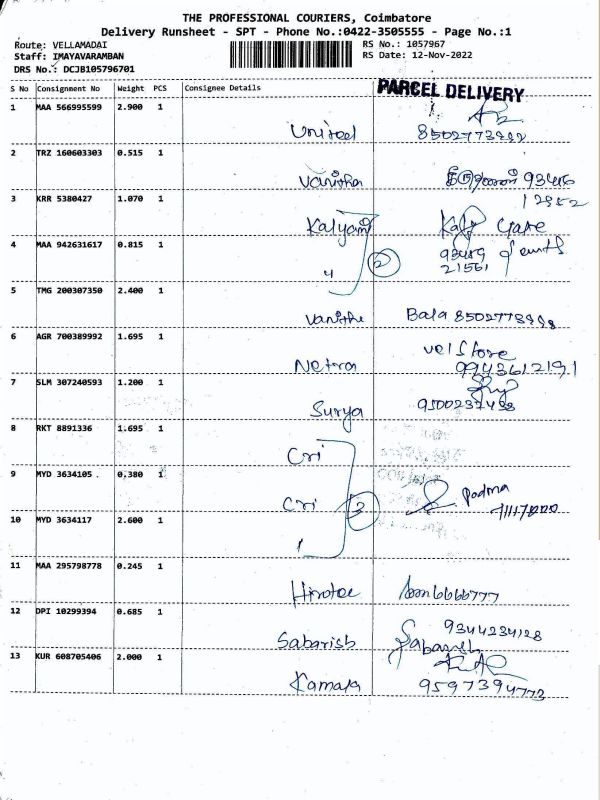 THE PROFESSIONAL COURIERS, Coimbatore
Delivery Runsheet - SPT - Phone No.:0422-3505555 - Page No.:1
Route: VELLAMADAI
Staff: IMAYAVARAMBAN
DRS No.: DCJB105796701
RS No.: 1057967
RS Date: 12-Nov-2022
S No Consignment No Weight PCS Consignee Details
PARCEL DELIVERY
1 MAA 566995599 2.900 1
United
2 TRZ 160603303 0.515 1
Vanitha
3 KRR 5380427 1.070 1
Kalyani
4 MAA 942631617 0.815 1
4 2 93489
21561
5 TMG 200307350 2.400 1
Vanitha Bala
6 AGR 700389992 1.695 1
Netra vel Store
9943612191
7 SLM 307240593 1.200 1
Surya
8 RKT 8891336 1.695 1
Cri
9 MYD 3634105 0.380 1
Cri 3 Padma
10 MYD 3634117 2.600 1
11 MAA 295798778 0.245 1
12 DPI 10299394 0.685 1
Sabarish Sabarish 9344234128
13 KUR 608705406 2.000 1
Kamala 9597394773